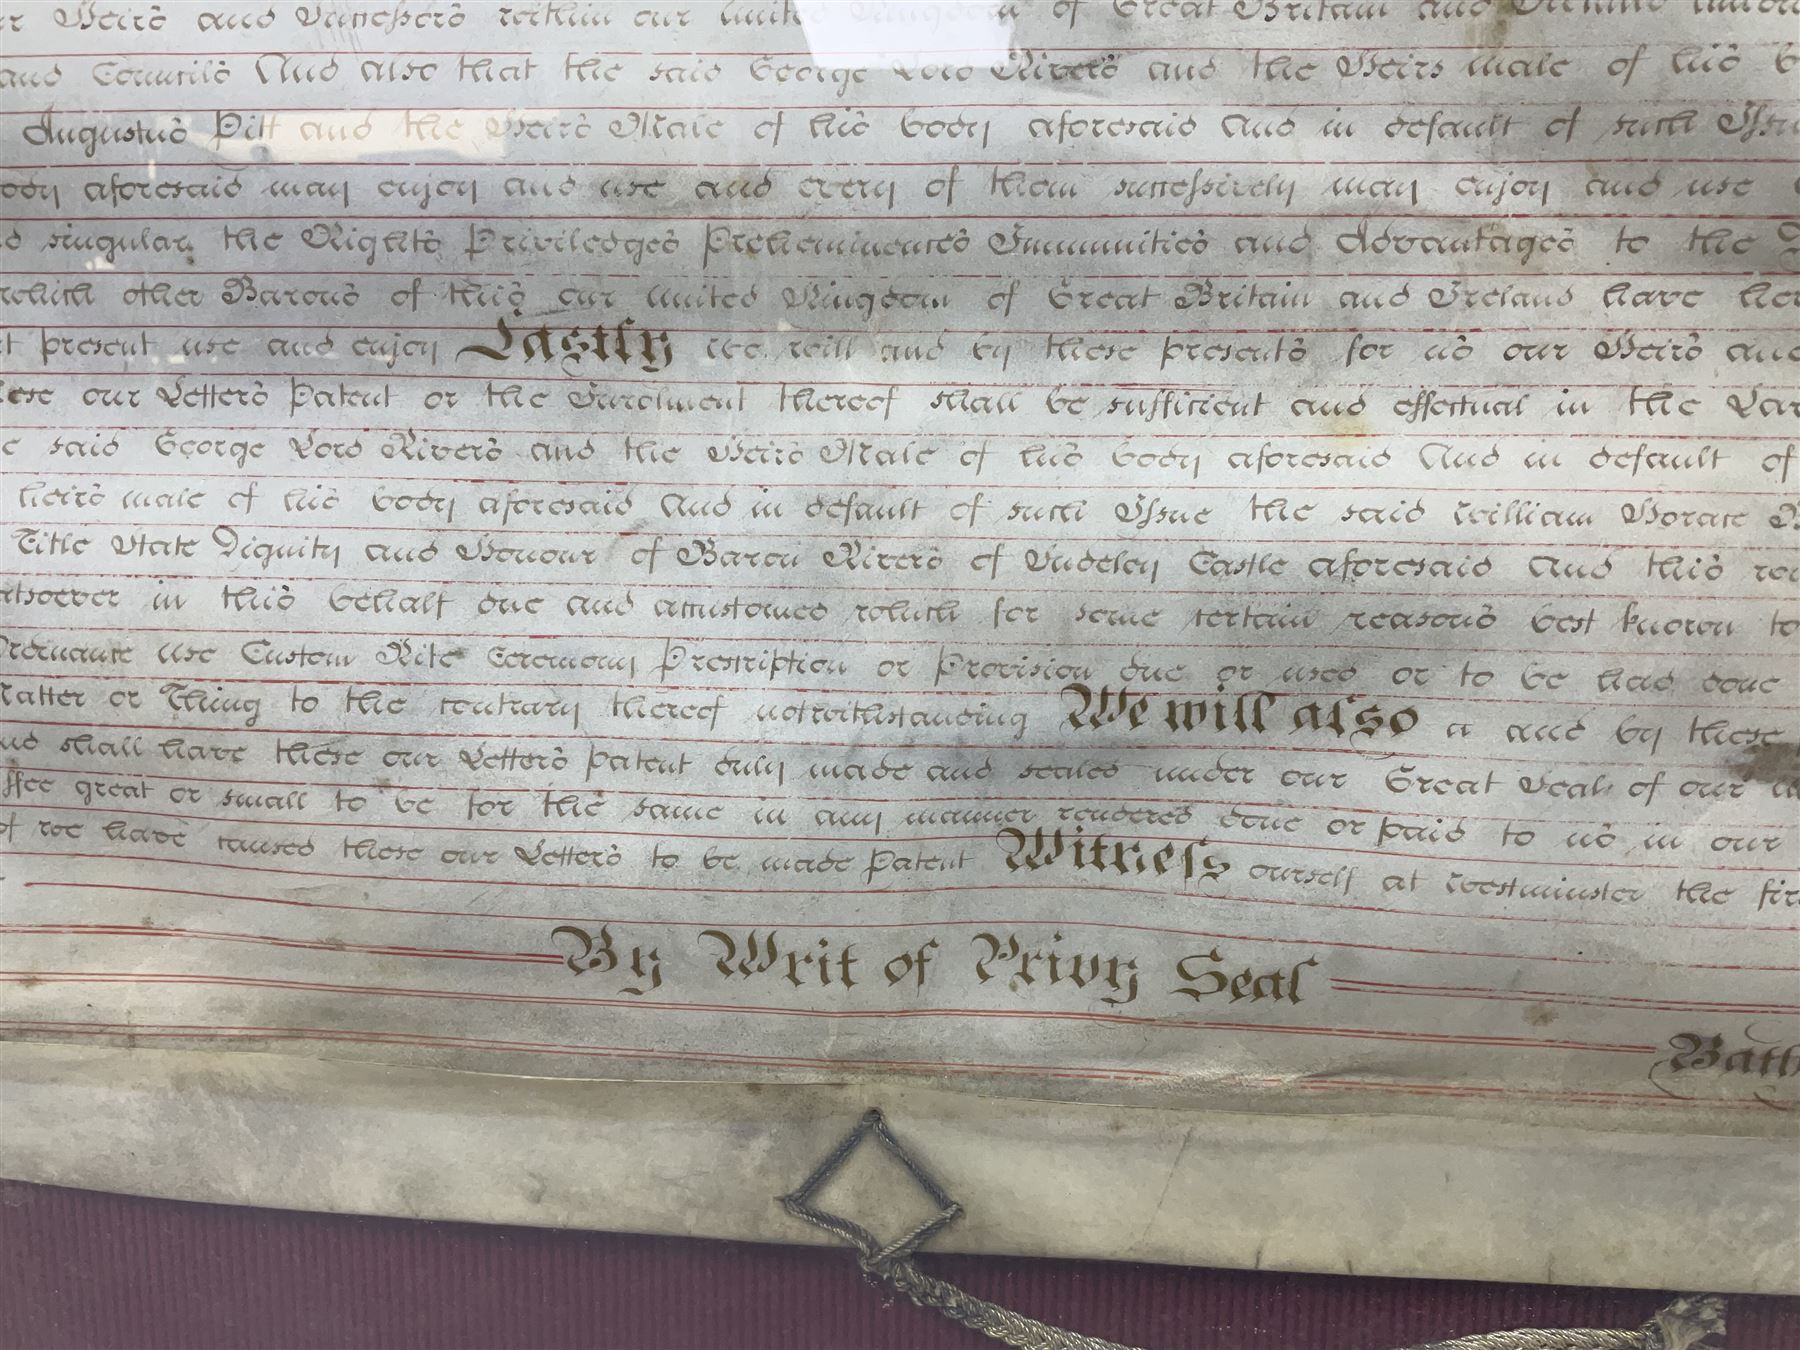 Heirs and Successors within our United Kingdom of Great Britain and Ireland
and Councils And also that the said George Lord Rivers and the Heirs male of his
Augustus Pitt and the Heirs Male of his body aforesaid And in default of such Issue
body aforesaid may enjoy and use and every of them successively may enjoy and use
singular the Rights Priviledges Preheminences Immunities and Advantages to the
which other Barons of this our United Kingdom of Great Britain and Ireland have
present use and enjoy Lastly we will and by these presents for us our Heirs and
these our Letters Patent or the Inrolment thereof shall be sufficient and effectual in the Law
said George Lord Rivers and the Heirs Male of his body aforesaid And in default of
heirs male of his body aforesaid And in default of such Issue the said William Horace
Title State Dignity and Honour of Baron Rivers of Sudeley Castle aforesaid And this
in this behalf due and accustomed which for some certain reasons best known to
Ordinance use Custom Rite Ceremony Prescription or Provision due or used or to be had done
Matter or Thing to the contrary thereof notwithstanding We will also a and by these
shall have these our Letters Patent duly made and sealed under our Great Seal of our
great or small to be for the same in any manner rendered done or paid to us in our
of we have caused these our Letters to be made Patent Witness ourself at Westminster the
By Writ of Privy Seal
Bath